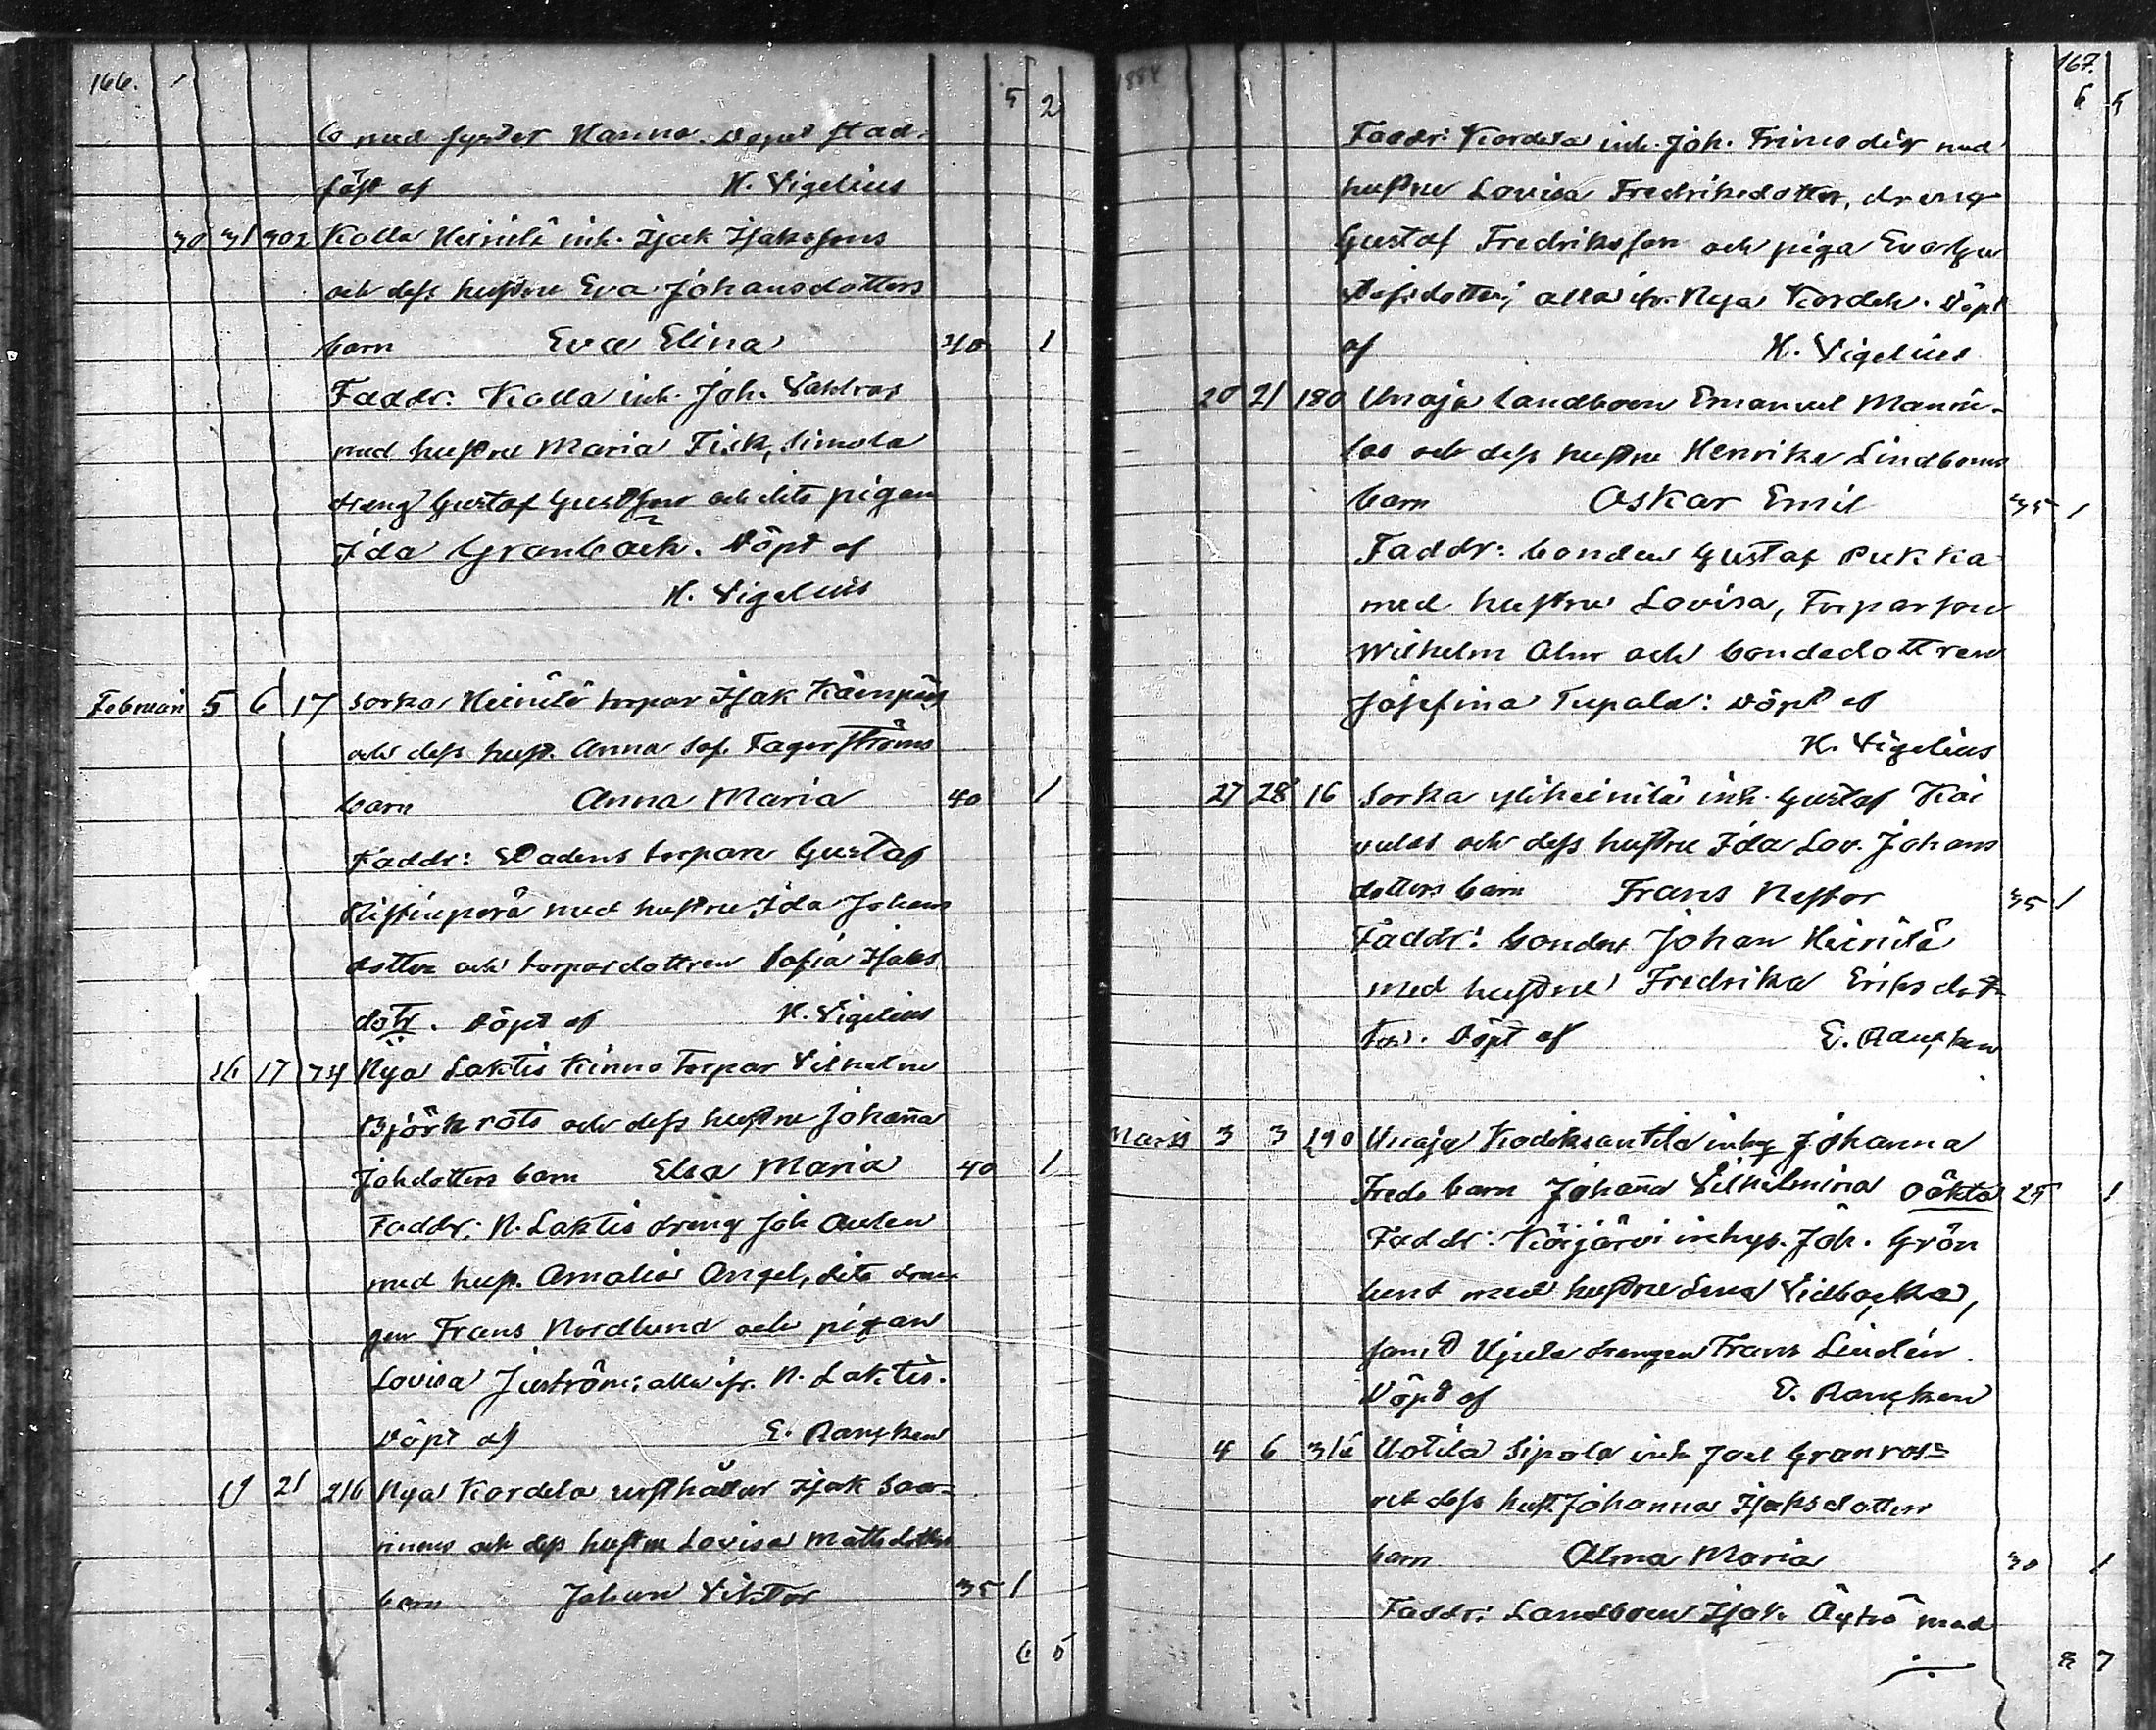 166.
5 2
bo med syster Hanna. Dopet stad-
fäst af H. Vigelius
30 31 302 Kolla Heinilä inh. Isak Isakssons
och dess hustru Eva Johansdotters
barn Eva Elina 40 1
Faddr: Kolla inh. Joh. Vahlros
med hustru Maria Fisk, Simola
dreng Gustaf Gustfson och dito pigan
Ida Granback. Döpt af
H. Vigelius
Februari 5 6 17 Sorka Heinilä torpar Isak Kämpäs
och dess hust. Anna Sof. Fagerströms
barn Anna Maria 40 1
Faddr: Stadens torpare Gustaf
Ristinperä med hustru Ida Johans
dotter och torpardottren Sofia Isaks
dotr. Döpt af H. Vigelius
16 17 74 Nya Laktis Kinno torpar Vilhelm
Björkrots och dess hustru Johanna
Johdotters barn Elsa Maria 40 1
Faddr: N. Laktis dreng Joh Aulen
med hust. Amalia Angel, dito dren
gen Frans Nordlund och pigan
Lovisa Juström; alla ifr. N. Laktis.
Döpt af E. Rancken
19 21 216 Nya Kordela rusthållar Isak Saa-
rinens och dess hustru Lovisa Mattsdotters
barn Johan Viktor 35 1
6 5
1884
167.
6 5
Faddr: Kordela inh. Joh. Frimodig med
hustru Lovisa Fredriksdotter, dreng
Gustaf Fredriksson och piga Eva Gu
stafsdotter, alla ifr. Nya Kordela. Döpt
af H. Vigelius
20 21 180 Unaja landboen Emanuel Manni-
las och dess hustru Henrika Lindboms
barn Oskar Emil 35 1
Faddr: bonden Gustaf Pukka
med hustru Lovisa, Torparson
Wilhelm Alm och bondedottren
Josefina Tupala: Döpt af
H. Vigelius
27 28 16 Sorka Yliheinilä inh. Gustaf Kai
vulas och dess hustru Ida Lov. Johans
dotters barn Frans Nestor 35 1
Faddr: bonden Johan Heinilä
med hustru Fredrika Eriksdot
ter. Döpt af E. Rancken
Mars 3 3 190 Unaja Kodiksantila inhys Johanna
Freds barn Johanna Vilhelmina oäkta 25 1
Faddr: Köijärvi inhys. Joh. Grön
lund med hustru Lena Vidbacka,
samt Ujula drengen Frans Lindén.
Döpt af E. Rancken
4 6 316 Uotila Sipola inh Joel Granros=
och dess hust. Johanna Isaksdotters
barn Alma Maria 30 1
Faddr: Landboen Isak Äyhö med
8 7